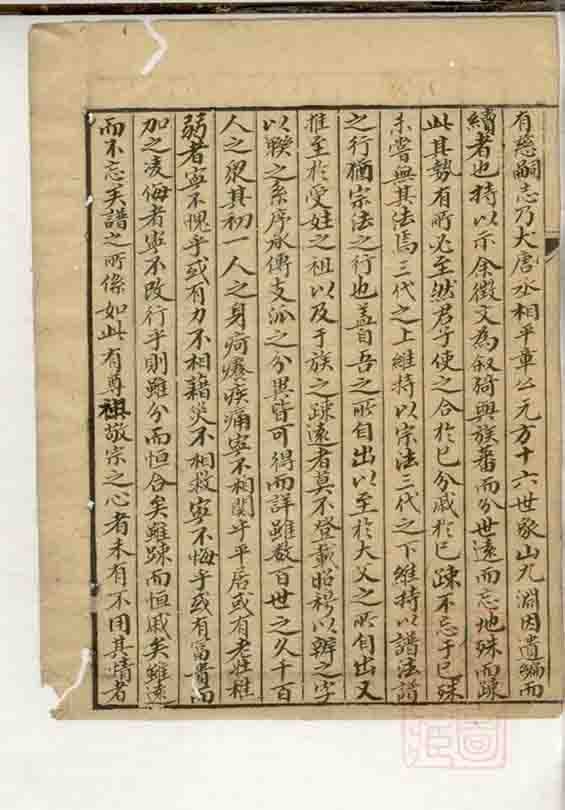 有慈嗣志乃大唐丞相平章公元方十六世象山九淵因遺編而
續者也持以示余徵文為叙猗與族蕃而分世遠而忘地殊而踈
此其勢有所必至然君子使之合於已分戚於已踈不忘于已殊
未嘗無其法焉三代之上維持以宗法三代之下維持以譜法譜
之行猶宗法之行也盖自吾之所自出以至於大父之所自出又
推至於受姓之祖以及于族之踈遠者莫不登載昭穆以辨之字
以聨之系序承傳支派之分異皆可得而詳雖数百世之久千百
人之衆其初一人之身疴癢疾痛寧不相関乎平居或有老壯稚
弱者寧不愧乎或有力不相藉災不相救寧不悔乎或有富貴而
加之凌侮者寧不改行乎則雖分而恒合矣雖踈而恒戚矣雖遠
而不忘矣譜之所係如此有尊祖敬宗之心者未有不用其情者
圖